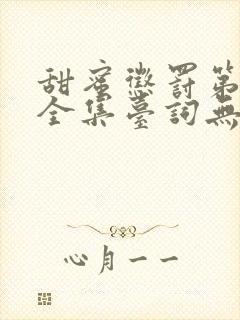 甜蜜懲罰第
全集臺詞無
心月一一